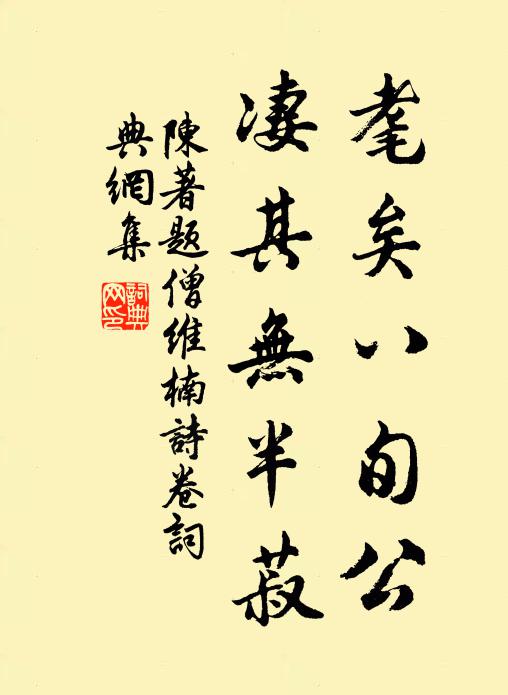 耄矣八旬公
凄其無半菽
陳著題僧維楠詩卷詞
典網集
詞典网印